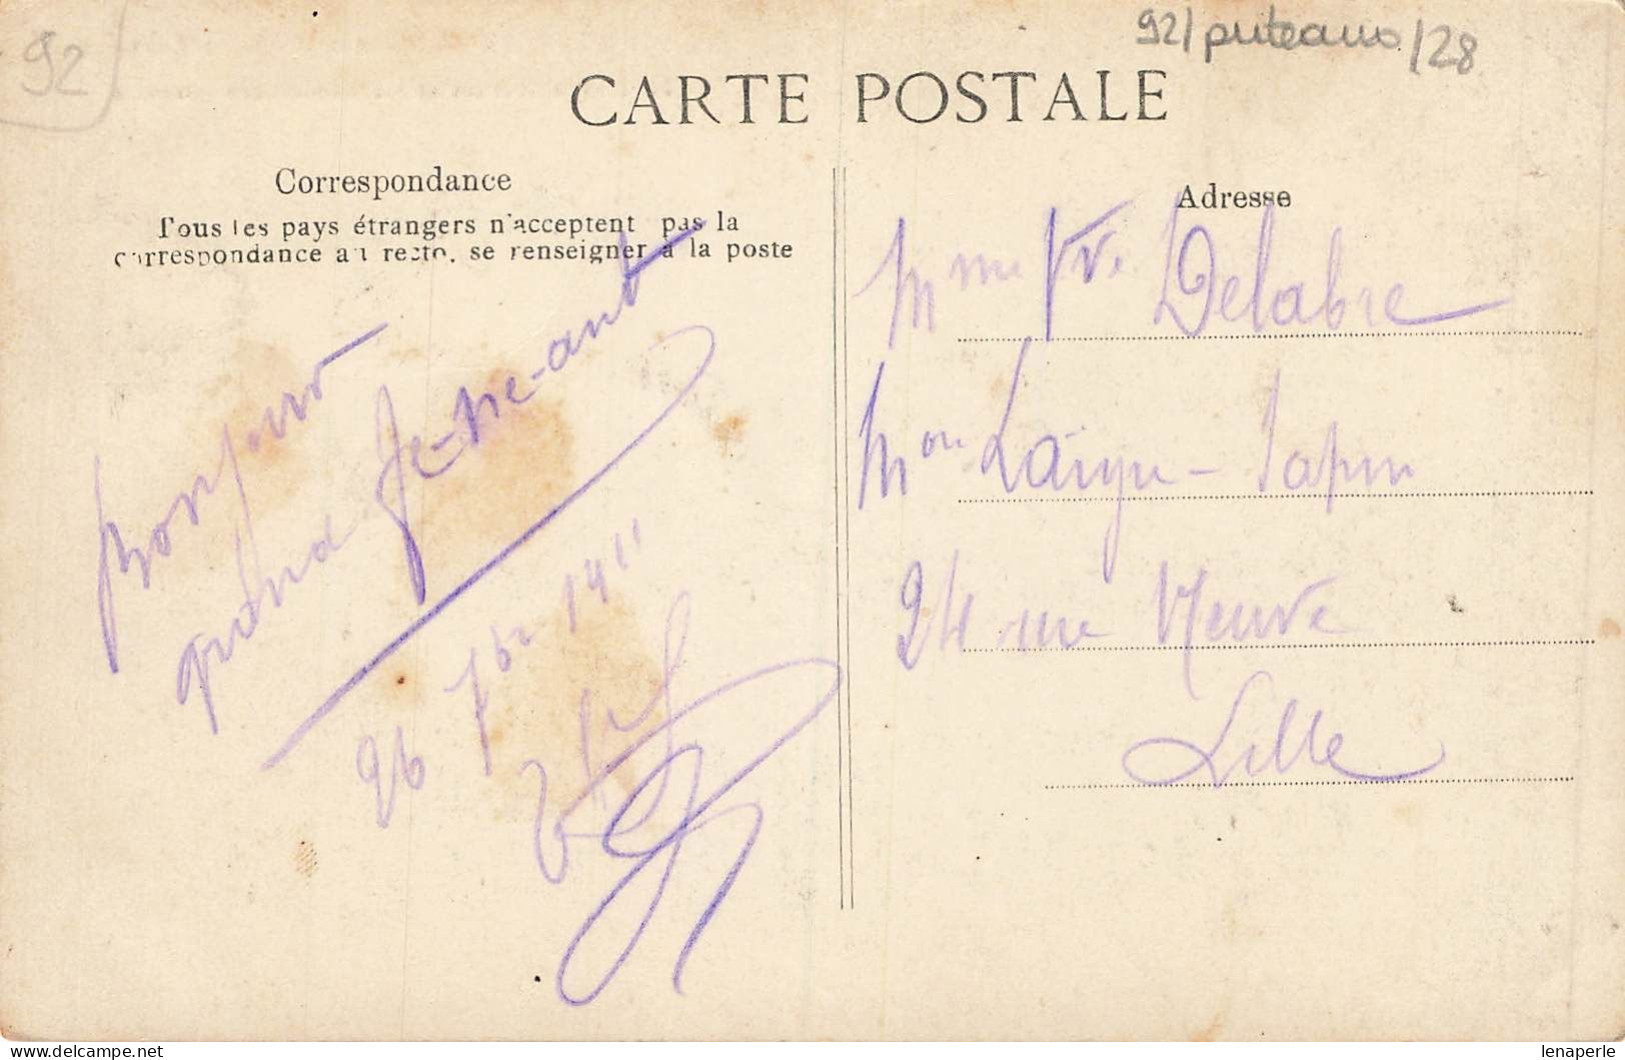 92
92/puteaux/28
CARTE POSTALE
Correspondance
Tous les pays étrangers n'acceptent pas la
correspondance au recto, se renseigner à la poste
Adresse
Bonjour
grand
26 7bre 1911
Mme Vve Delabre
Mon Laigu-Sapin
24 rue Neuve
Lille
lenaperle